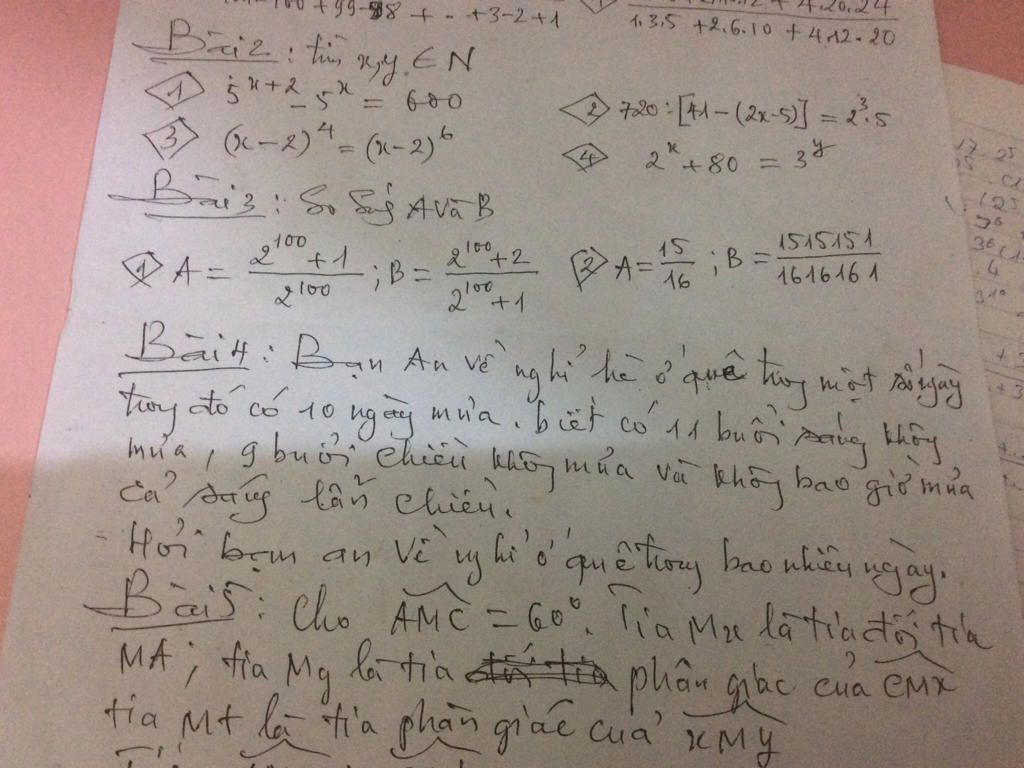 - 100 + 99 - 98 + .. + 3 - 2 + 1
4.20.24
1.3.5 + 2.6.10 + 4.12.20
Bài 2 : tìm x,y ∈ N
1 5^{x+2} - 5^x = 600
2 720 : [41 - (2x-5)] = 2^3.5
3 (x-2)^4 = (x-2)^6
4 2^x + 80 = 3^y
Bài 3 : So sánh A và B
1 A = \frac{2^{100}+1}{2^{100}} ; B = \frac{2^{100}+2}{2^{100}+1}
2 A = \frac{15}{16} ; B = \frac{1515151}{1616161}
Bài 4 : Bạn An về nghỉ hè ở quê trong một số ngày
trong đó có 10 ngày mưa. biết có 11 buổi sáng không
mưa, 9 buổi chiều không mưa và không bao giờ mưa
cả sáng lẫn chiều.
- Hỏi bạn an về nghỉ ở quê trong bao nhiêu ngày.
Bài 5 : Cho AMC = 60°. Tia Mx là tia đối tia
MA ; tia My là tia phân giác của CMx
tia Mt là tia phân giác của xMy